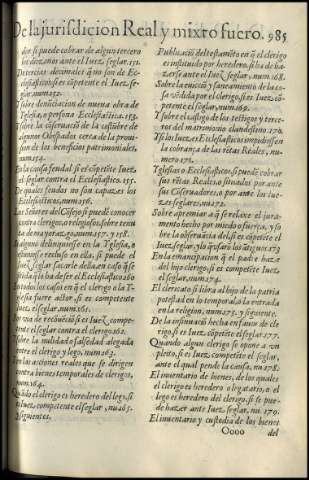 De la jurisdicion Real y mixto fuero. 985
dor si puede cobrar de algun tercero
los diezmos ante el Iuez seglar. 152.
De tercias decimales q̃ no son de Ec-
clesiasticos, si es cõpetente el Iuez se-
glar, num.
Sobre denũciacion de nueua obra de
Yglesia, o persona Ecclesiastica. 153.
Sobre la obseruãcia de la costũbre de
algunos Obispados cerca de la proui-
sion de los beneficios patrimoniales,
num. 154.
En la causa feudal si es cõpetẽte Iuez
el seglar contra el Ecclesiastico. 155.
De quales feudos no son capazes los
Ecclesiasticos, num. 156.
Los Señores del Cõsejo si puedẽ conocer
contra clerigos o religiosos, sobre tenu-
ta de mayorazgo, num. 157. y 158.
Si alguno delinquiesse en la Yglesia, o
Iuez seglar sacarle della en caso q̃ no
todos los casos en que el clerigo o la Y-
glesia fuere actor, si es competente
Iuez el seglar, num. 161.
te el seglar contra el clerigo. 162.
Sobre la nulidad o falsedad alegada
entre el clerigo y lego, num. 163.
En las acciones reales que se dirigen
contra bienes temporales de clerigos,
num. 164.
Quãdo el clerigo es heredero del lego, si
es Iuez competente el seglar, nu. 165.
y siguientes.
Publicaciõ del testamẽto en q̃ el clerigo
es instituido por heredero, si ha de ha-
zerse ante el Iuez seglar, num. 168.
Sobre la euiccion y saneamiento de la co-
sa vẽdida por el clerigo, si es Iuez cõ-
petente el seglar, num. 169.
Y sobre el castigo de los testigos y terce-
ros del matrimonio clandestino. 170.
Y si los Iuezes Ecclesiasticos impidiessen
la cobrança de las rẽtas Reales, nu-
mero 171.
Yglesias o Ecclesiasticos, si puedẽ cobrar
sus rẽtas Reales, o situados por ante
sus Cõseruadores, o por ante los Iue-
zes seglares, nu. 172.
Sobre apremiar a q̃ se relaxe el jura-
mento hecho por miedo o fuerça, y so-
bre la obseruãcia del, si es cõpetẽte el
Iuez seglar, y lo q̃ usarõ los antiguos. 173
En la emancipacion que el padre haze
del hijo clerigo, si es competente Iuez
el seglar, num. 174.
El clericato si libra al hijo de la patria
potestad en lo temporal, o la entrada
en la religion, num. 175. y siguiente.
De la insinuaciõ hecha en fauor de cle-
rigo, si es Iuez cõpetẽte el seglar. 177.
Quando algun clerigo se opone a vn
pleito, si es Iuez cõpetẽte el seglar,
ante el qual pende la causa, nu. 178.
El inuentario de bienes, de los quales
el clerigo es heredero o legatario, o el
lego es heredero del clerigo, si se pue-
de hazer ante Iuez seglar, nu. 179.
El inuentario y custodia de los bienes
Oooo del